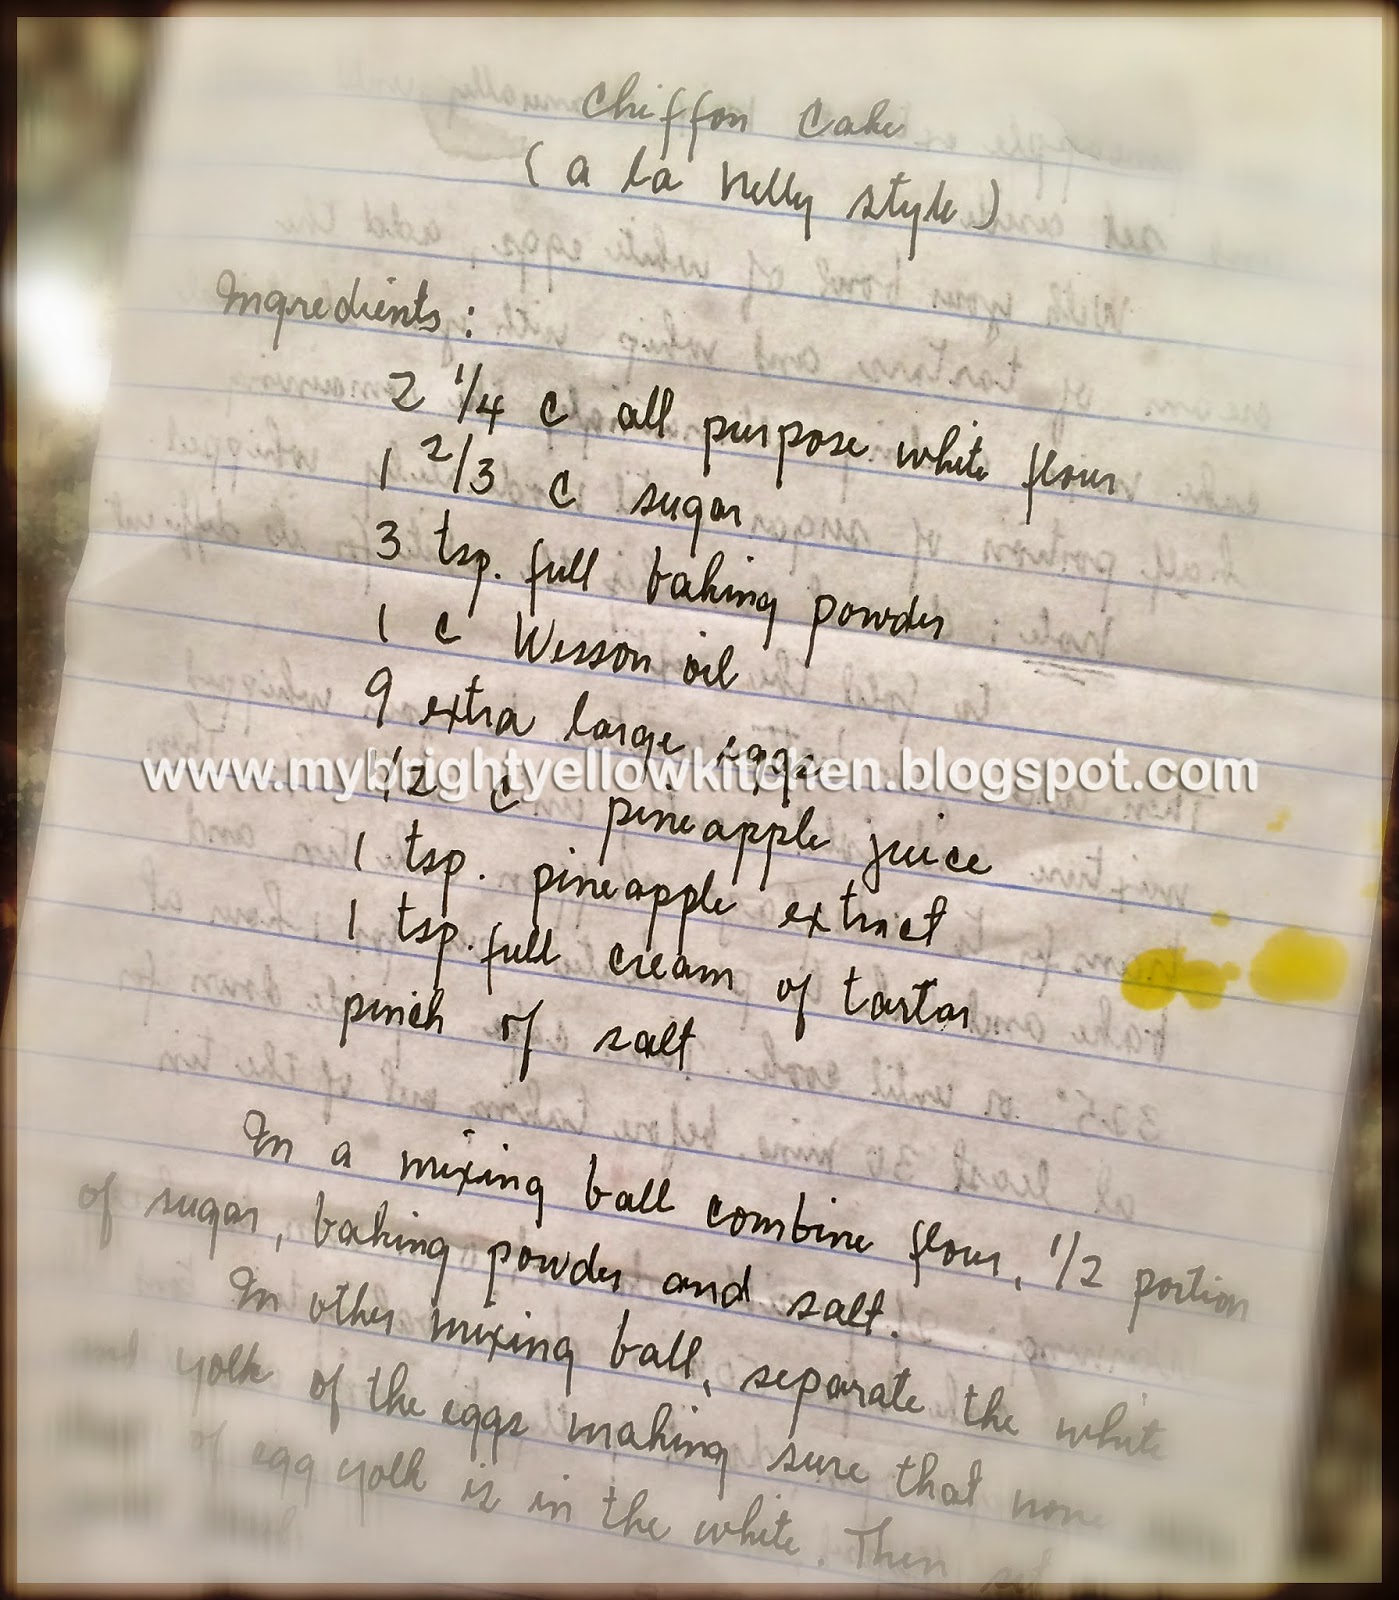 Chiffon Cake
(a la Nelly style)
Ingredients:
2 1/4 c all purpose white flour
1 2/3 c sugar
3 tsp. full baking powder
1 c Wesson oil
9 extra large eggs
www.mybrightyellowkitchen.blogspot.com
1/2 c pineapple juice
1 tsp. pineapple extract
1 tsp. full cream of tartar
pinch of salt
In a mixing ball combine flour, 1/2 portion
of sugar, baking powder and salt.
In other mixing ball, separate the white
and yolk of the eggs making sure that none
of egg yolk is in the white. Then set